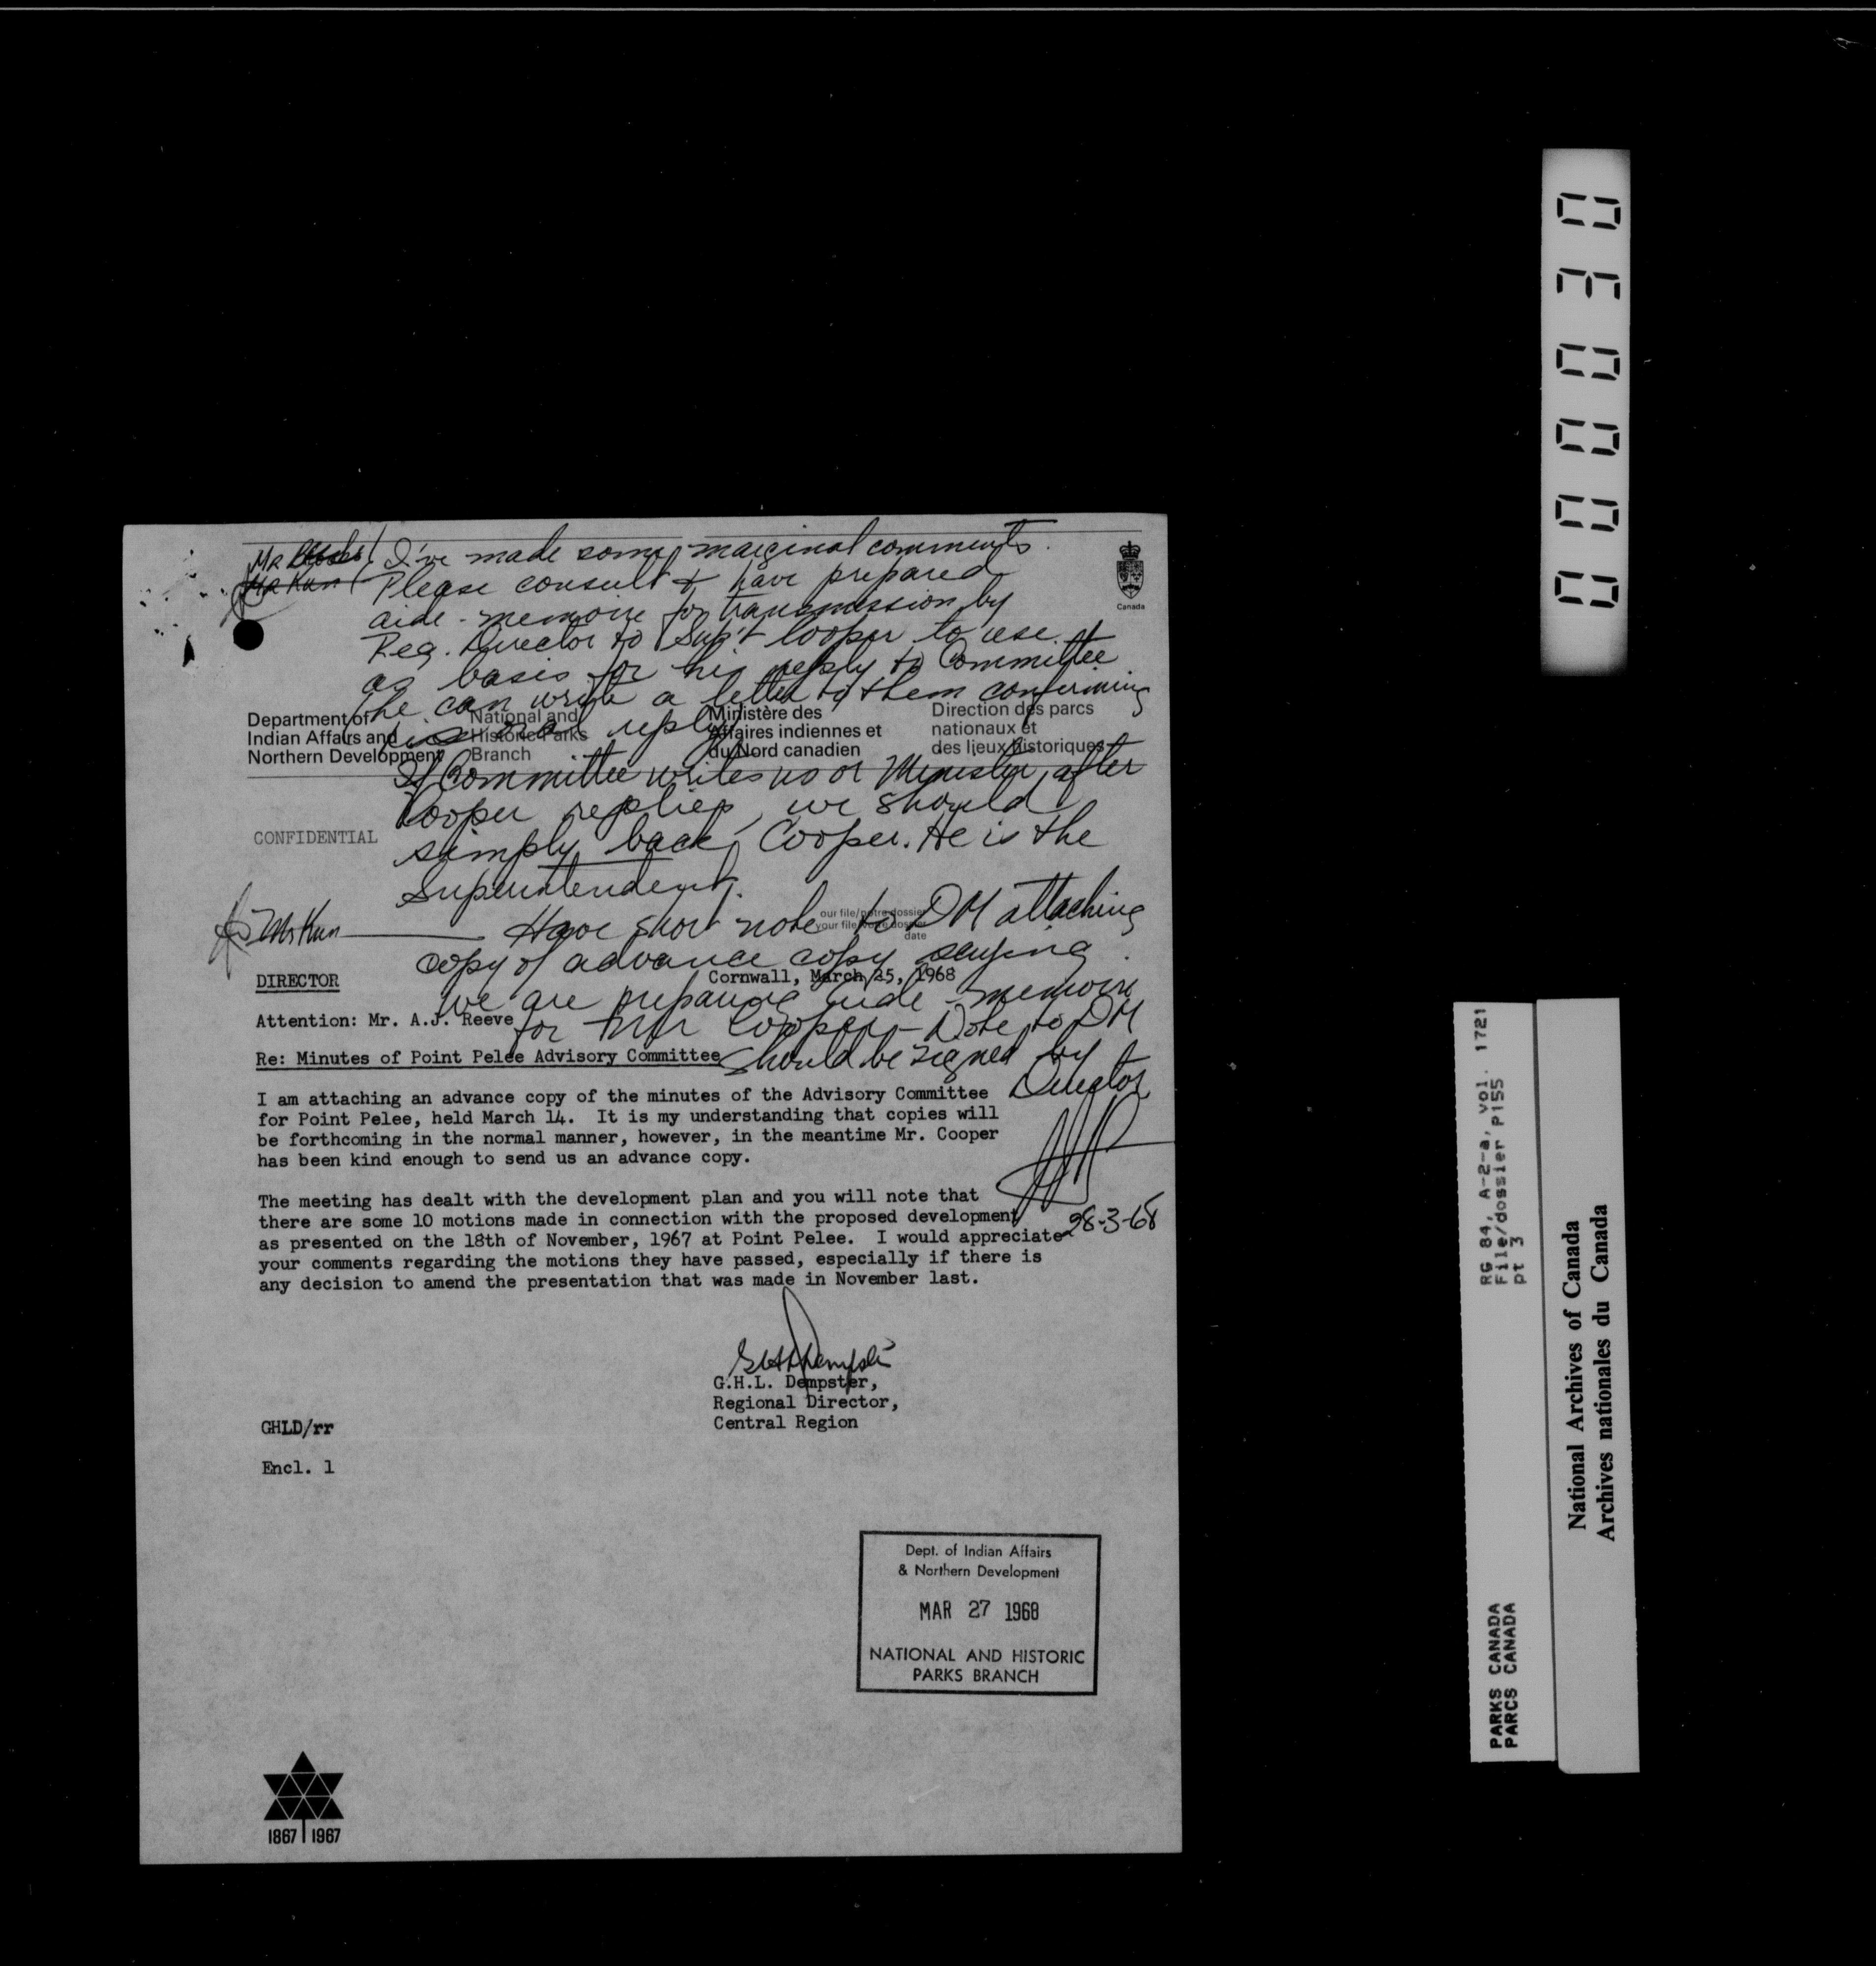 I've made some marginal comments.
Mr Kun Please consult & have prepared
aide-memoire for transmission by
Reg. Director to Sup't Cooper to use
as basis for his reply to Committee
he can write a letter to them confirming
his oral reply
Canada
Department of
Indian Affairs and
Northern Development
National and
Historic Parks
Branch
Ministère des
Affaires indiennes et
du Nord canadien
Direction des parcs
nationaux et
des lieux historiques
If Committee writes us or Minister after
Cooper replies, we should
simply back Cooper. He is the
Superintendent.
CONFIDENTIAL
Mr Kun Have short note to DM attaching
copy of advance copy saying
we are preparing aide-memoire
for Mr Cooper - Note to DM
should be signed by
Director
our file/notre dossier
your file/votre dossier
date
DIRECTOR
Cornwall, March 25, 1968
Attention: Mr. A.J. Reeve
Re: Minutes of Point Pelee Advisory Committee
I am attaching an advance copy of the minutes of the Advisory Committee
for Point Pelee, held March 14. It is my understanding that copies will
be forthcoming in the normal manner, however, in the meantime Mr. Cooper
has been kind enough to send us an advance copy.
The meeting has dealt with the development plan and you will note that
there are some 10 motions made in connection with the proposed development
as presented on the 18th of November, 1967 at Point Pelee. I would appreciate
your comments regarding the motions they have passed, especially if there is
any decision to amend the presentation that was made in November last.
28-3-68
GHL Dempster
G.H.L. Dempster,
Regional Director,
Central Region
GHLD/rr
Encl. 1
Dept. of Indian Affairs
& Northern Development
MAR 27 1968
NATIONAL AND HISTORIC
PARKS BRANCH
1867 1967
RG 84, A-2-a, vol. 1721
File/dossier P155
pt 3
PARKS CANADA
PARCS CANADA
National Archives of Canada
Archives nationales du Canada